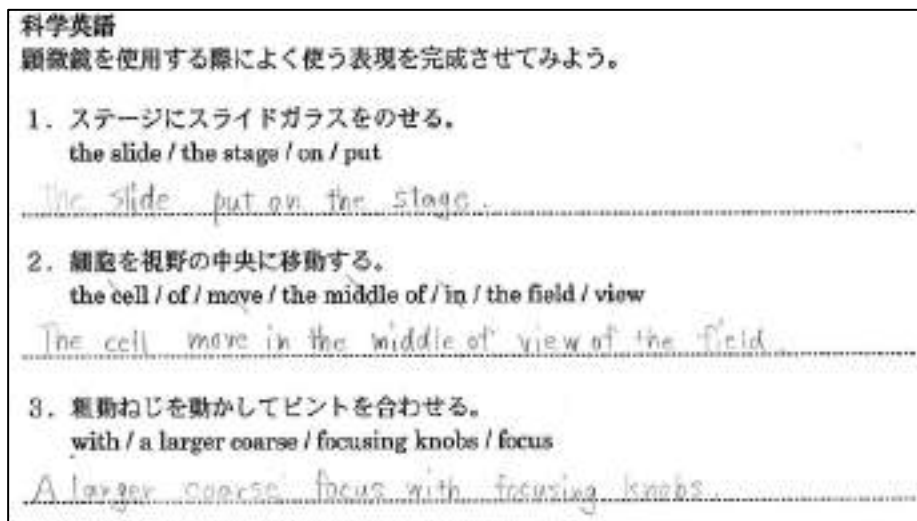 科学英語
顕微鏡を使用する際によく使う表現を完成させてみよう。
1. ステージにスライドガラスをのせる。
the slide / the stage / on / put
The slide put on the stage.
2. 細胞を視野の中央に移動する。
the cell / of / move / the middle of / in / the field / view
The cell move in the middle of view of the field.
3. 粗動ねじを動かしてピントを合わせる。
with / a larger coarse / focusing knobs / focus
A larger coarse focus with focusing knobs.